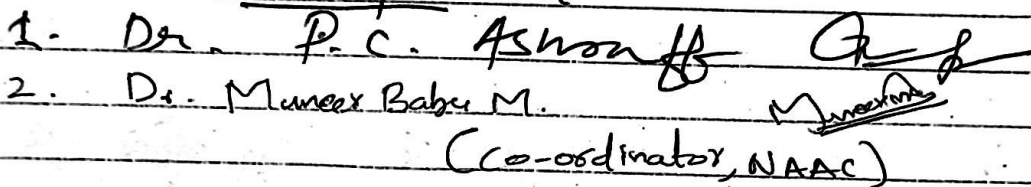 1. Dr. P.C. Ashraff
2. Dr. Muneer Babu M.
(Co-ordinator, NAAC)